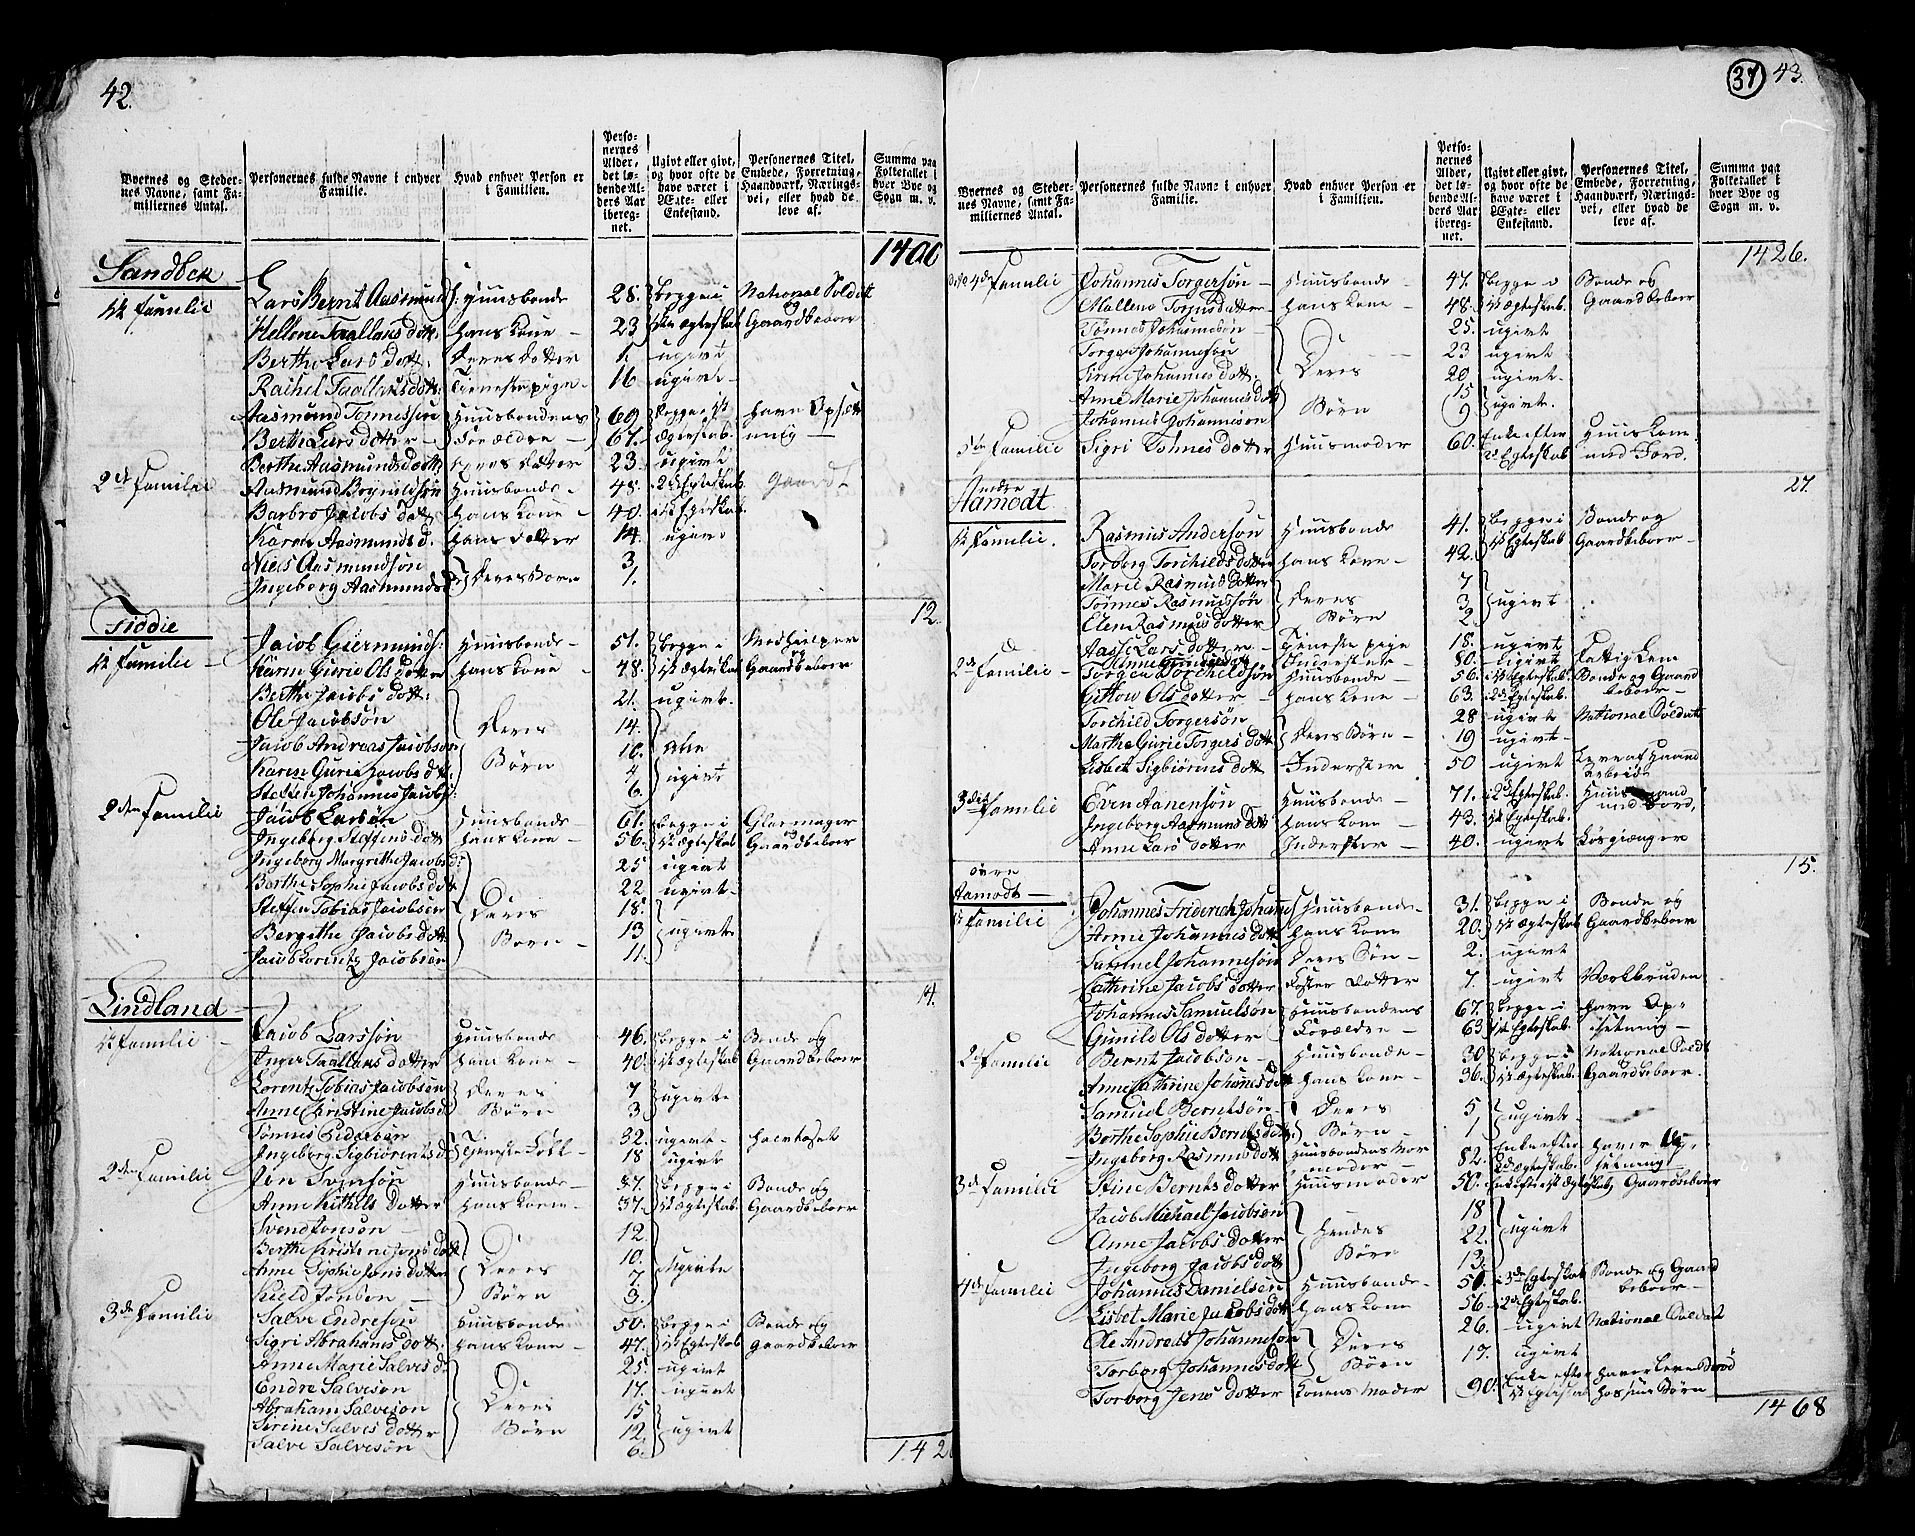 42.
Byernes og Stedernes Navne, samt Familiernes Antal.
Personernes fulde Navne i enhver Familie.
Hvad enhver Person er i Familien.
Personernes Alder, det løbende Alders Aar iberegnet.
Ugivt eller givt, og hvor ofte de have været i Ægte- eller Enkestand.
Personernes Titel, Embede, Forretning, Haandværk, Næringsvei, eller hvad de leve af.
Summa paa Folketallet i hver Bye og Sogn m. v.
1400
Sandbek
1ste Familie Lars Bernt Aasmunds: Huusbonde 28. begge i National Soldat og
Hellene Taallevs dott. hans Kone 23 1ste ægteskab Gaardbeboer
Berthe Lars dott. deres dotter 1. ugivt
Rachel Taallevs dott. Tienestepige 16 ugivt
Aasmund Tönnessøn Huusbondens 69 begge i 1ste have Opsætt
Berthe Lars dotter Forældre 67. ægteskab. ning
Berthe Aasmunds dott. deres dotter 23. ugivt
2den Familie Aasmund Bognildsøn Huusbonde 48. 2det Egteskab Gaardb
Barbro Jacobs dott. hans Kone 40. i 1ste Egteskab.
Karen Aasmunds d. hans dotter 14. ugivt
Niels Aasmundsøn 3.
Ingeborg Aasmunds d. deres Børn 1.
12.
Fiddie
1ste Familie Jacob Giermunds: Huusbonde 51. begge i Medhielper og
Karen Gurie Ols dotter hans Kone 48. 1ste ægteskab Gaardbeboer
Berthe Jacobs dott: 21. ugivt
Ole Jacobsøn Deres 14.
Jacob Andreas Jacobsøn 10. Alle
Karen Gurie Jacobs dt. Børn 4. ugivt
Steffen Johannes Jacobs: 6.
2den Familie Jacob Larsøn Huusbonde 61. begge i Glarmager og
Ingeborg Steffens dott hans Kone 56. 1ste ægteskab. Gaardbeboer
Ingeborg Margrethe Jacobs d: 25 ugivt
Berthe Sophie Jacobs dott 22 ugivt
Steffen Tobias Jacobsen Deres 18.
Bergithe Jacobs dott 13 ugivt
Jacob Lorentz Jacobsen Børn 11.
14.
Lindland
1ste Familie Jacob Larssøn Huusbonde 46. begge i Bonde og
Inger Taallevs dotter hans Kone 40. 1ste ægteskab Gaardbeboer
Lorentz Tobias Jacobsen Deres 7 ugivte
Anne Christine Jacobs d Børn 3
Tønnes Pedersøn 32. ugivt
Ingeborg Sigbiörens d. Tieneste Folk 18 ugivt
2den Familie Jon Svensøn Huusbonde 37. begge i Bonde og
Anne Kittels dotter hans Kone 37. 1ste ægteskab. Gaardbeboer
Svend Jonsøn 12
Berthe Christine Jons dott Deres 10. ugivte
Anne Sophie Jons dotter 7.
Kield Jonsøn Børn 3.
3de Familie Salve Endresøn Huusbonde 50. begge i Bonde og
Sigri Abrahams dott. hans Kone 47. 1ste Egteskab Gaardbeboer
Anne Marie Salves d. 25. ugivt
Endre Salvesøn Deres 17. ugivt
Abraham Salvesøn 15
Serine Salves dotter Børn 12. ugivt
Salve Salvesøn 6.
1426
37 43.
Byernes og Stedernes Navne, samt Familiernes Antal.
Personernes fulde Navne i enhver Familie.
Hvad enhver Person er i Familien.
Personernes Alder, det løbende Alders Aar iberegnet.
Ugivt eller givt, og hvor ofte de have været i Ægte- eller Enkestand.
Personernes Titel, Embede, Forretning, Haandværk, Næringsvei, eller hvad de leve af.
Summa paa Folketallet i hver Bye og Sogn m. v.
1426.
4de Familie Johannes Torgersøn Huusbonde 47. begge i Bonde og
Mallene Torjus dotter hans Kone 48. 1ste Ægteskab. Gaardbeboer
Tønnes Johannesøn 25. ugivt
Torger Johannesøn Deres 23 ugivt
Sirene Johannes dott. 20. ugivt
Anne Marie Johannes dott Børn 15 ugivt.
Johannes Johannesøn 9
5te Familie Sigri Tohnes dotter Huusmoder 60. Enke efter Huus Kone
2det Egteskab med Jord.
27.
Nedre
Aamodt
1ste Familie. Rasmus Andersøn Huusbonde 41. begge i Bonde og
Torborg Torchilds dotter hans Kone 42. 1ste Egteskab Gaardbeboer
Marie Rasmus dotter 7
Tønnes Rasmussøn Deres 3 ugivt
Elen Rasmus dotter Børn 2.
Aasse Lars dotter Tieneste pige 18. ugivt
Anne Gunders Inderste 80. ugivt Fattig Lem
2den Familie Torger Torchildsøn Huusbonde 56. 1ste Egteskab. Bonde og Gaard
Gittow Ols dotter hans Kone 63. i 2det Egteskab. beboer
Torchild Torgersøn 28 ugivt National Soldat
Marthe Gurie Torgers dott Deres Børn 19 ugivt
Lisbet Sigbiörens dott Inderster 50 ugivt Lever af Haand Arbeide
3die Familie Even Aanensøn Huusbonde 71. i 2det Egteskab. Huusmand
Ingeborg Aasmunds dott hans Kone 43. 1ste Egteskab. med Jord,
Anne Lars dotter Inderster 40. ugivt Løsgiænger
15.
øvre
Aamodt
1ste Familie Johannes Friderich Johanness Huusbonde 31. begge i Bonde og
Anne Johannes dott hans Kone 20. 1ste Ægteskab Gaardbeboer
Samuel Johannesøn Deres Søn 2. ugivt
Cathrine Jacobs dotter Foster Dotter 7. ugivt
Johannes Samuelsøn Huusbondens 67. begge i have Op-
Gunild Ols dotter Forældre 63 1ste Egteskab. sætning
2den Familie Bernt Jacobsøn Huusbonde 30 begge i National Soldat
Anne Cathrine Johannes d hans Kone 36. 1ste Egteskab. Gaardbeboer.
Samuel Berntsøn Deres 5 ugivt
Berthe Sophie Bernts dott. Børn 1
Ingeborg Rasmus dott Huusbondens Mor moder 82. Enke efter 2det ægteskab. haver Op- sætning
3de Familie Stine Bernts dotter Huusmoder 50. Enke efter 1ste ægteskab Gaardbeboer
Jacob Michael Jacobsen 18
Anne Jacobs dotter Hendes 22. ugivt
Ingeborg Jacobs dott Børn 13.
4de Familie Johannes Danielsen Huusbonde 50. i 3de Egteskab Bonde og Gaard
Lisbet Marie Jacobs dott hans Kone 56 i 2det Egteskab. beboer
Ole Andreas Johannesøn Deres 26. ugivt National Soldat
Torborg Johannes dott Børn 17. ugivt
Torborg Jens dotter Konens Moder 90. Enke efter haver Leve Brød
1ste Egteskab hos sine Børn
1468